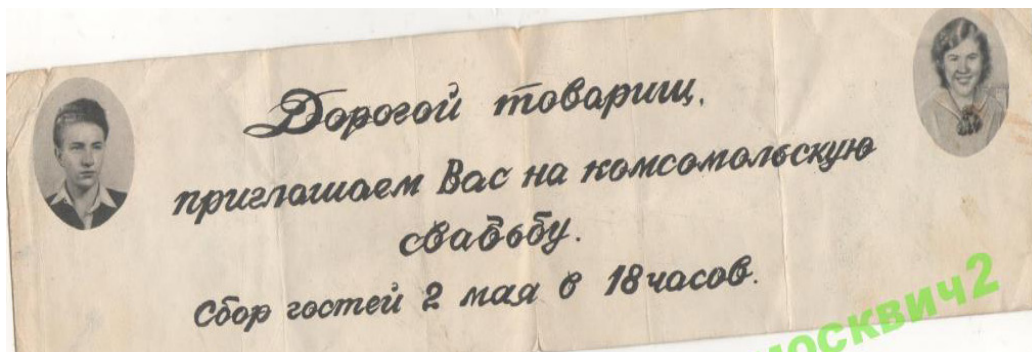 Дорогой товарищ,
приглашаем Вас на комсомольскую
свадьбу.
Сбор гостей 2 мая в 18 часов.
москвич2